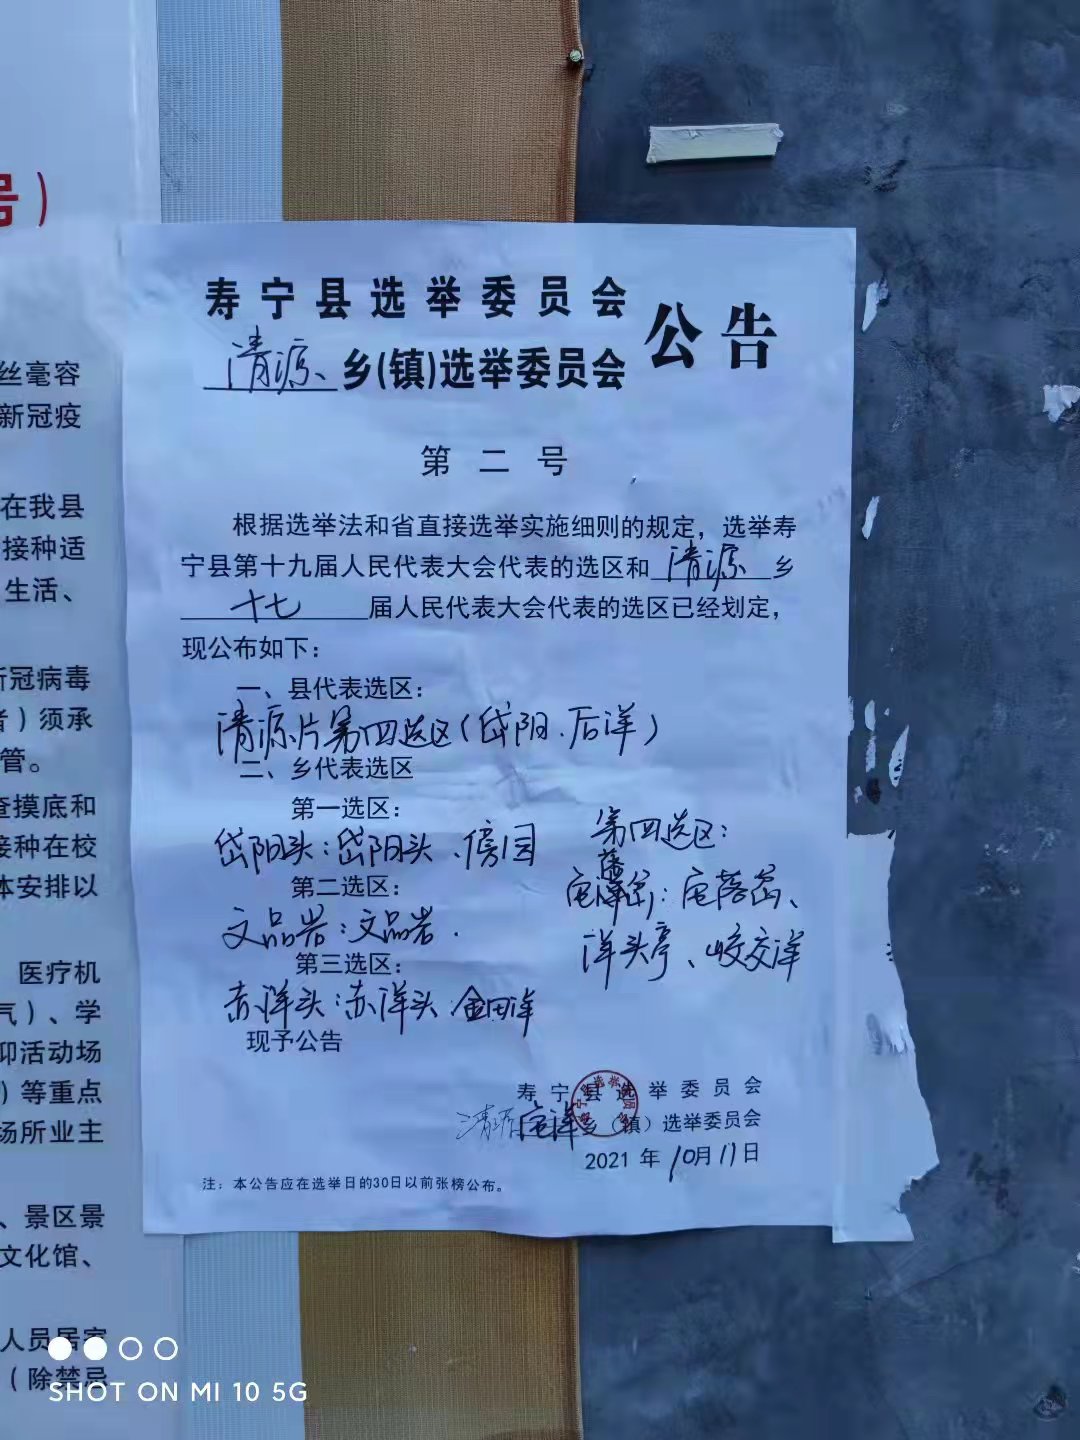 号）
丝毫容
新冠疫
在我县
接种适
生活、
新冠病毒
者）须承
管。
查摸底和
接种在校
体安排以
医疗机
气）、学
仰活动场
）等重点
场所业主
、景区景
文化馆、
人员居家
（除禁忌
寿宁县选举委员会
清源乡(镇)选举委员会
公告
第二号
根据选举法和省直接选举实施细则的规定，选举寿
宁县第十九届人民代表大会代表的选区和清源乡
十七届人民代表大会代表的选区已经划定，
现公布如下：
一、县代表选区：
清源片第四选区（岱阳、后洋）
二、乡代表选区
第一选区：
岱阳头：岱阳头、傍园
第二选区：
文品岩：文品岩.
第三选区：
赤洋头：赤洋头、金田洋
第四选区：
洋头亭、
现予公告
寿宁县选举委员会
清源乡（镇）选举委员会
2021年10月11日
注：本公告应在选举日的30日以前张榜公布。
SHOT ON MI 10 5G